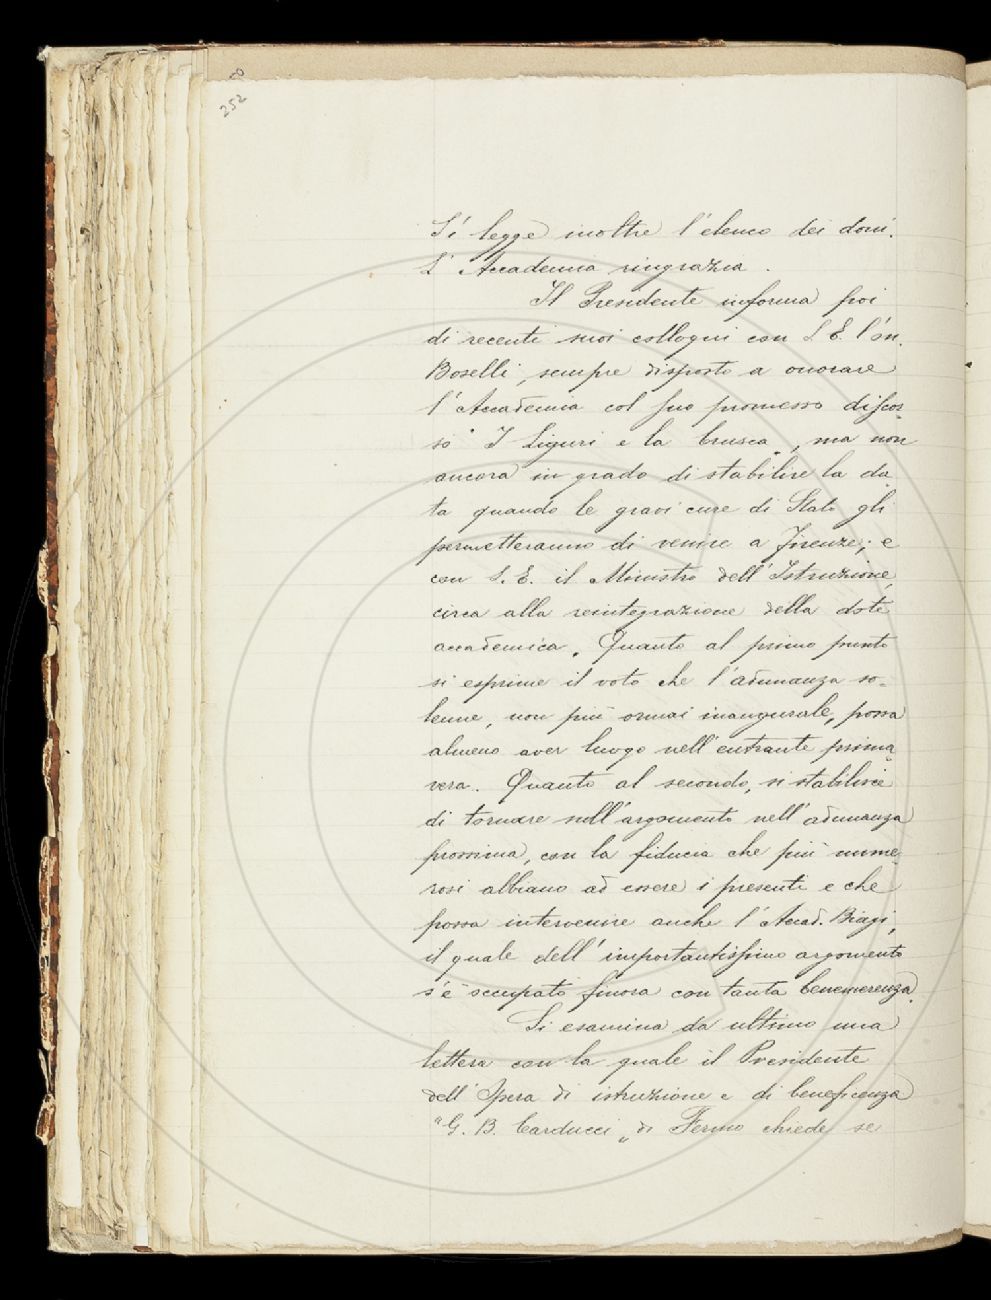 50
252
Si legge inoltre l'elenco dei doni.
L'Accademia ringrazia.
Il Presidente informa poi
di recenti suoi colloqui con S. E. l'on.
Boselli, sempre disposto a onorare
l'Accademia col suo promesso discor-
so "I Liguri e la Crusca", ma non
ancora in grado di stabilire la da-
ta quando le gravi cure di Stato gli
permetteranno di venire a Firenze; e
con S. E. il Ministro dell'Istruzione,
circa alla reintegrazione della dote
accademica. Quanto al primo punto
si esprime il voto che l'adunanza so-
lenne, non più ormai inaugurale, possa
almeno aver luogo nell'entrante prima-
vera. Quanto al secondo, si stabilisce
di tornare sull'argomento nell'adunanza
prossima, con la fiducia che più nume-
rosi abbiano ad essere i presenti e che
possa intervenire anche l'Accad. Biagi,
il quale dell'importantissimo argomento
s'è occupato finora con tanta benemerenza.
Si esamina da ultimo una
lettera con la quale il Presidente
dell'Opera di istruzione e di beneficenza
"G. B. Carducci" di Fermo chiede se